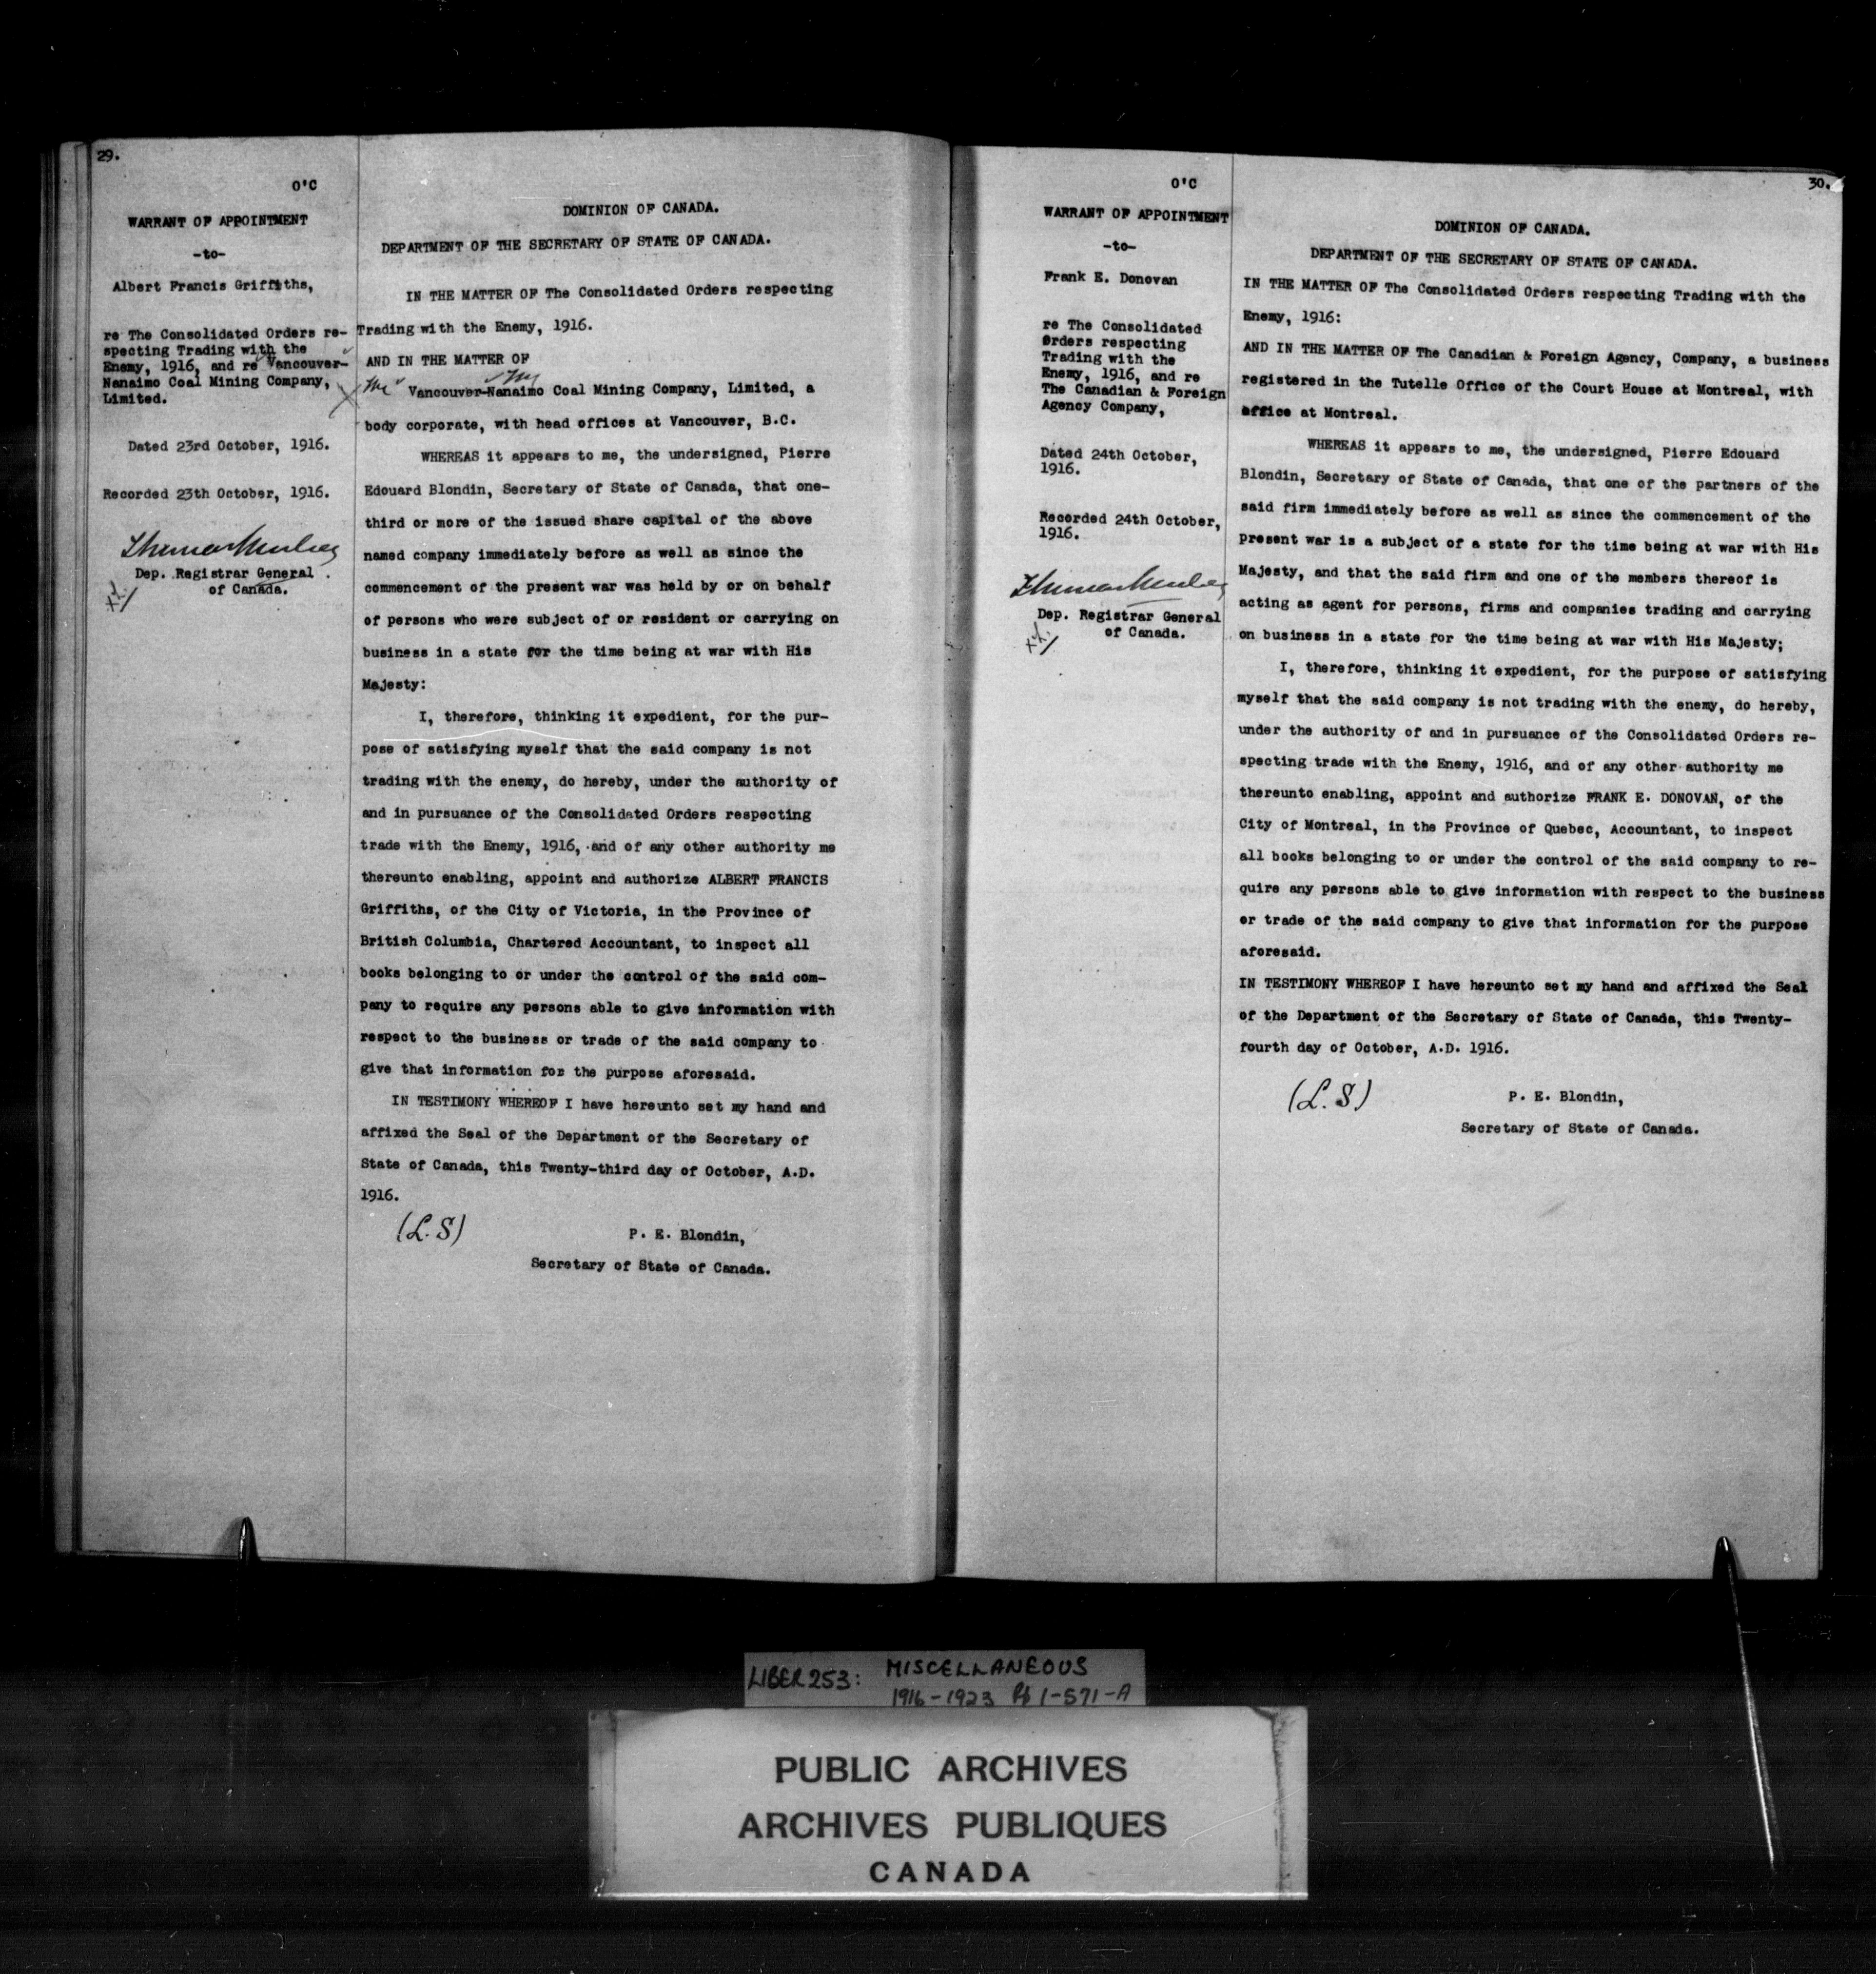 29.
O'C
WARRANT OF APPOINTMENT
-to-
Albert Francis Griffiths,
re The Consolidated Orders re-
specting Trading with the
Enemy, 1916, and re Vancouver-
Nanaimo Coal Mining Company,
Limited.
Dated 23rd October, 1916.
Recorded 23th October, 1916.
Dep. Registrar General
of Canada.
DOMINION OF CANADA.
DEPARTMENT OF THE SECRETARY OF STATE OF CANADA.
IN THE MATTER OF The Consolidated Orders respecting
Trading with the Enemy, 1916.
AND IN THE MATTER OF
Vancouver-Nanaimo Coal Mining Company, Limited, a
body corporate, with head offices at Vancouver, B.C.
WHEREAS it appears to me, the undersigned, Pierre
Edouard Blondin, Secretary of State of Canada, that one-
third or more of the issued share capital of the above
named company immediately before as well as since the
commencement of the present war was held by or on behalf
of persons who were subject of or resident or carrying on
business in a state for the time being at war with His
Majesty:
I, therefore, thinking it expedient, for the pur-
pose of satisfying myself that the said company is not
trading with the enemy, do hereby, under the authority of
and in pursuance of the Consolidated Orders respecting
trade with the Enemy, 1916, and of any other authority me
thereunto enabling, appoint and authorize ALBERT FRANCIS
Griffiths, of the City of Victoria, in the Province of
British Columbia, Chartered Accountant, to inspect all
books belonging to or under the control of the said com-
pany to require any persons able to give information with
respect to the business or trade of the said company to
give that information for the purpose aforesaid.
IN TESTIMONY WHEREOF I have hereunto set my hand and
affixed the Seal of the Department of the Secretary of
State of Canada, this Twenty-third day of October, A.D.
1916.
(L.S)
P. E. Blondin,
Secretary of State of Canada.
30.
O'C
WARRANT OF APPOINTMENT
-to-
Frank E. Donovan
re The Consolidated
Orders respecting
Trading with the
Enemy, 1916, and re
The Canadian & Foreign
Agency Company,
Dated 24th October,
1916.
Recorded 24th October,
1916.
Dep. Registrar General
of Canada.
DOMINION OF CANADA.
DEPARTMENT OF THE SECRETARY OF STATE OF CANADA.
IN THE MATTER OF The Consolidated Orders respecting Trading with the
Enemy, 1916:
AND IN THE MATTER OF The Canadian & Foreign Agency, Company, a business
registered in the Tutelle Office of the Court House at Montreal, with
office at Montreal.
WHEREAS it appears to me, the undersigned, Pierre Edouard
Blondin, Secretary of State of Canada, that one of the partners of the
said firm immediately before as well as since the commencement of the
present war is a subject of a state for the time being at war with His
Majesty, and that the said firm and one of the members thereof is
acting as agent for persons, firms and companies trading and carrying
on business in a state for the time being at war with His Majesty;
I, therefore, thinking it expedient, for the purpose of satisfying
myself that the said company is not trading with the enemy, do hereby,
under the authority of and in pursuance of the Consolidated Orders re-
specting trade with the Enemy, 1916, and of any other authority me
thereunto enabling, appoint and authorize FRANK E. DONOVAN, of the
City of Montreal, in the Province of Quebec, Accountant, to inspect
all books belonging to or under the control of the said company to re-
quire any persons able to give information with respect to the business
or trade of the said company to give that information for the purpose
aforesaid.
IN TESTIMONY WHEREOF I have hereunto set my hand and affixed the Seal
of the Department of the Secretary of State of Canada, this Twenty-
fourth day of October, A.D. 1916.
(L.S)
P. E. Blondin,
Secretary of State of Canada.
LIBER 253: MISCELLANEOUS
1916-1923 Pt 1-571-A
PUBLIC ARCHIVES
ARCHIVES PUBLIQUES
CANADA